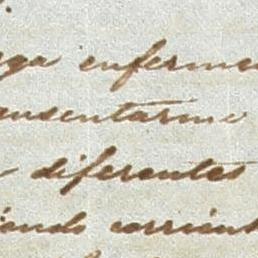 enferme
ausentarme
diferentes
iendo corrient